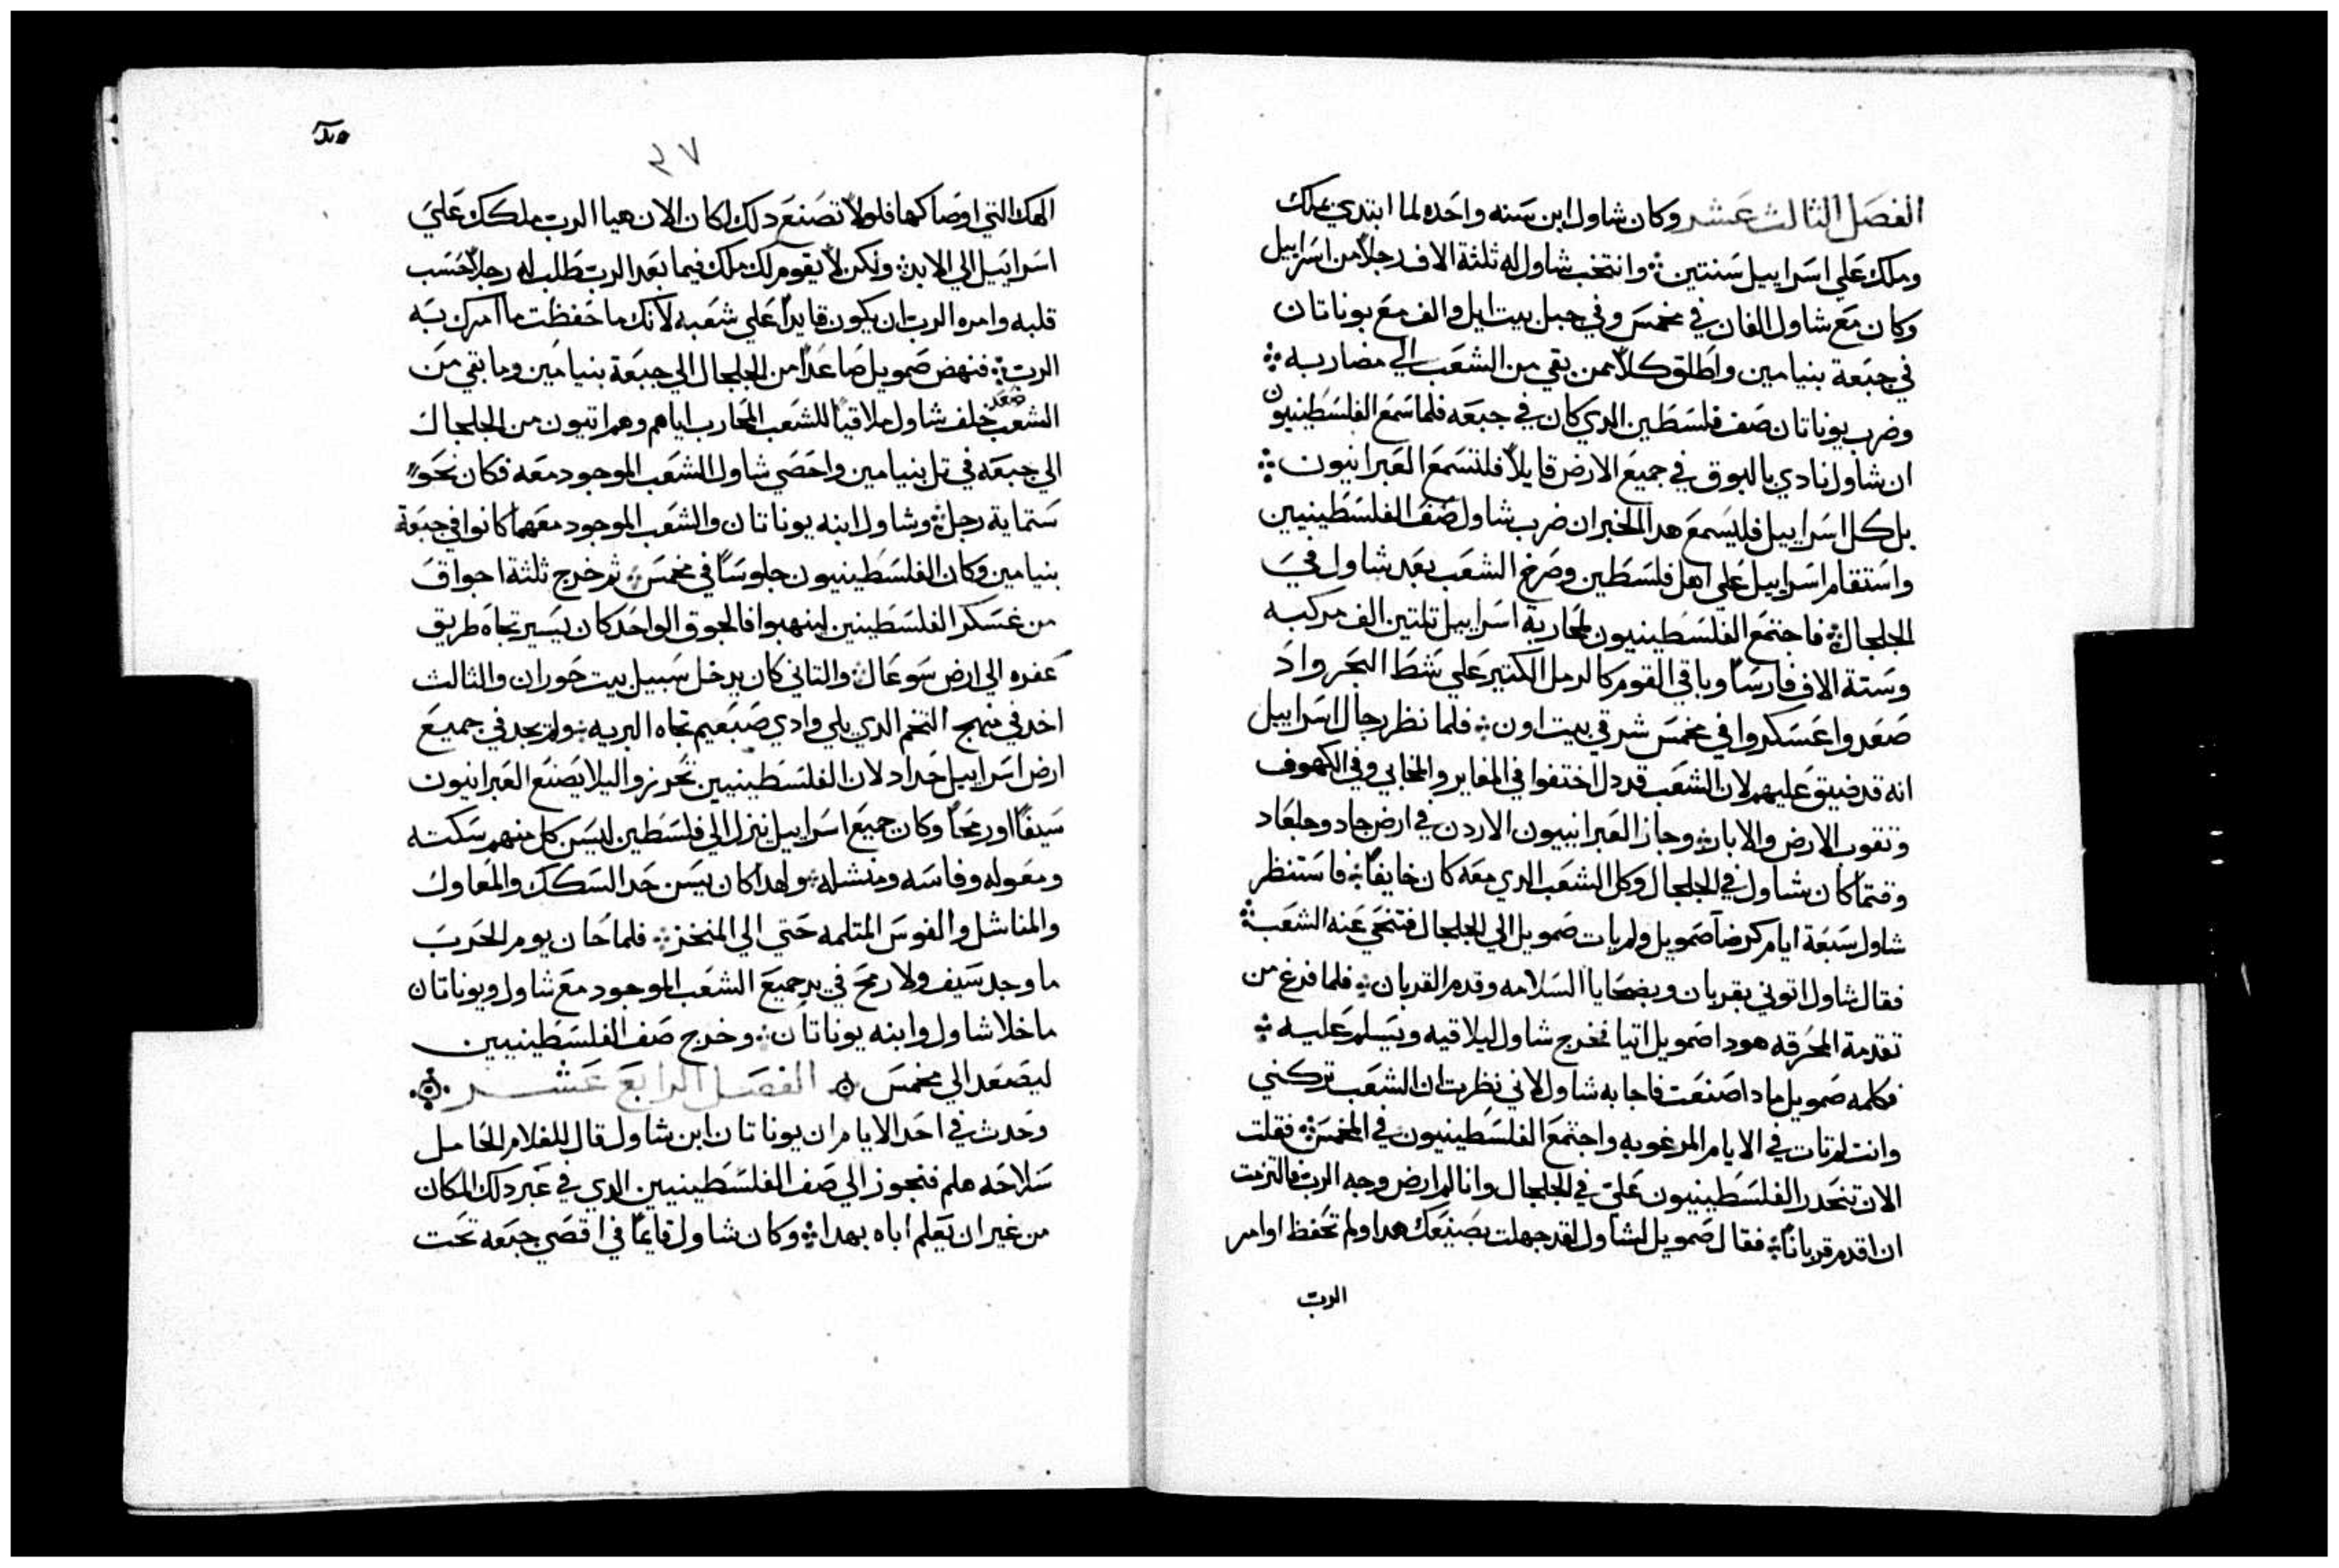 الفصل الثالث عشر وكان شاول ابن سنه واحده لما ابتدي يملك
وملك علي اسراييل سنتين ܀ وانتخب شاول له ثلثة الاف رجلاً من اسراييل
وكان مع شاول الفان في مخمس وفي جبل بيت ايل والف مع يوناتان
في جبعة بنيامين واطلق كلاً ممن بقي من الشعب الي مضاربه ܀
وضرب يوناتان صف فلسطين الدي كان في جبعه فلما سمع الفلسطينيون
ان شاول نادي بالبوق في جميع الارض قايلاً فلتسمع العبرانيون ܀
بل كل اسراييل فليسمع هدا الخبر ان ضرب شاول صف الفلسطينيين
واستقام اسراييل علي اهل فلسطين وصرخ الشعب بعد شاول في
الجلجال ܀ فاجتمع الفلسطينيون لمحاربة اسراييل تلتين الف مركبه
وستة الاف فارساً وباقي القوم كالرمل الكتير علي شط البحر واد
صعدوا عسكروا في مخمس شرقي بيت اون ܀ فلما نظر رجال اسراييل
انه قد ضيق عليهم لان الشعب قد دل اختفوا في المغاير والمخابي وفي الكهوف
ونقوب الارض والابار ܀ وجاز العبرانييون الاردن في ارض جاد وجلعاد
وفتما كان شاول في الجلجال وكل الشعب الدي معه كان خايفاً ܀ فاستنظر
شاول سبعة ايام كرضآ صمويل ولم يات صمويل الي الجلجال فتنحي عنه الشعب ܀
فقال شاول اتوني بقربان وبضحايا السلامه وقدم القربان ܀ فلما فرغ من
تقدمة المحرقه هودا صمويل اتيا فخرج شاول ليلاقيه ويسلم عليه ܀
فكلمه صمويل مادا صنعت فاجابه شاول لاني نظرت ان الشعب تركني
وانت لم تات في الايام المرغوبه واجتمع الفلسطينيون في المخمس ܀ فقلت
الان تنحدر الفلسطينيون علي في الجلجال وانا لم ارض وجه الرب فالتزمت
ان اقدم قرباناً ܀ فقال صمويل لشاول لقد جهلت بصنيعك هدا ولم تحفظ اوامر
الرب
٤٧
الهك التي اوصاك بها فلولا تصنع دلك لكان الان هيا الرب ملكك علي
اسراييل الي الابد ܀ ولكن لا يقوم لك ملك فيما بعد الرب طلب له رجلاً حسب
قلبه وامره الرب ان يكون قايداً علي شعبه لانك ما حفظت ما امرك به
الرب ܀ فنهض صمويل صاعداً من الجلجال الي جبعة بنيامين وما بقي من
الشعب صعد خلف شاول ملاقياً للشعب المحارب اياهم وهم اتيون من الجلجال
الي جبعه في تل بنيامين واحصي شاول الشعب الموجود معه فكان نحو
ستماية رجل ܀ وشاول ابنه يوناتان والشعب الموجود معهما كانوا في جبعة
بنيامين وكان الفلسطينيون جلوساً في مخمس ܀ ثم خرج ثلثة اجواق
من عسكر الفلسطينين لينهبوا فالجوق الواحد كان يسير تجاه طريق
عفره الي ارض سوعال ܀ والتاني كان يدخل سبيل بيت حوران والثالث
اخد في منهج التخم الدي يلي وادي صبعيم تجاه البريه ܀ ولم يجد في جميع
ارض اسراييل حداد لان الفلسطينيين تحرزوا ليلا يصنع العبرانيون
سيفاً او رمحاً وكان جميع اسراييل ينزل الي فلسطين ليسن كل منهم سكته
ومعوله وفاسه ومنشله ܀ ولهدا كان يسن حد السكك والمعاول
والمناشل والفوس المتلمه حتي الي المنخز ܀ فلما حان يوم الحرب
ما وجد سيف ولا رمح في يد جميع الشعب الموجود مع شاول ويوناتان
ما خلا شاول وابنه يوناتان ܀ وخرج صف الفلسطينيين
ليصعد الي مخمس ܀ الفصل الرابع عشر ܀
وحدث في احد الايام ان يوناتان ابن شاول قال للغلام الحامل
سلاحه هلم فنجوز الي صف الفلسطينيين الدي في عبر دلك المكان
من غير ان يعلم اباه بهدا ܀ وكان شاول قايماً في اقصي جبعه تحت